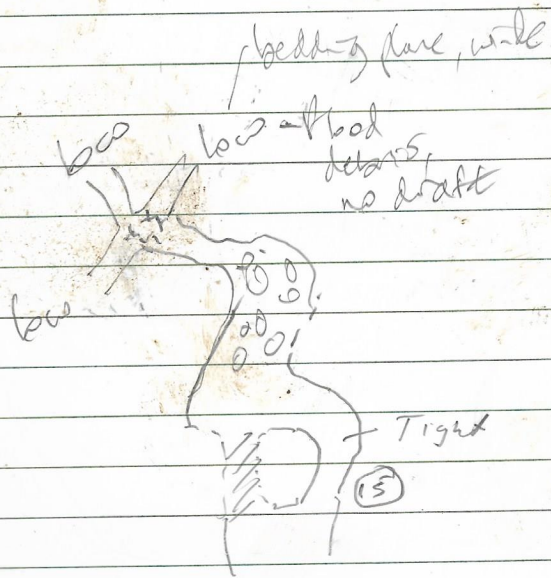 bedding plane, wide
loco
loco - flood
debris,
no draft
loco
Tight
15